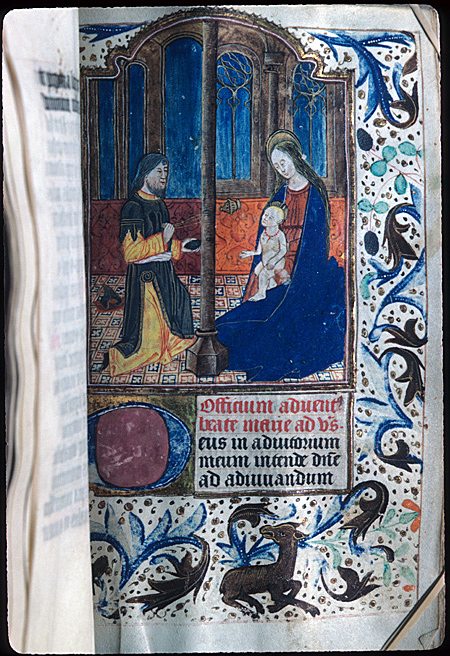 Officium aduent⁹
beate marie ad vs-
eus in adiutorium
meum intende dñe
ad adiuuandum